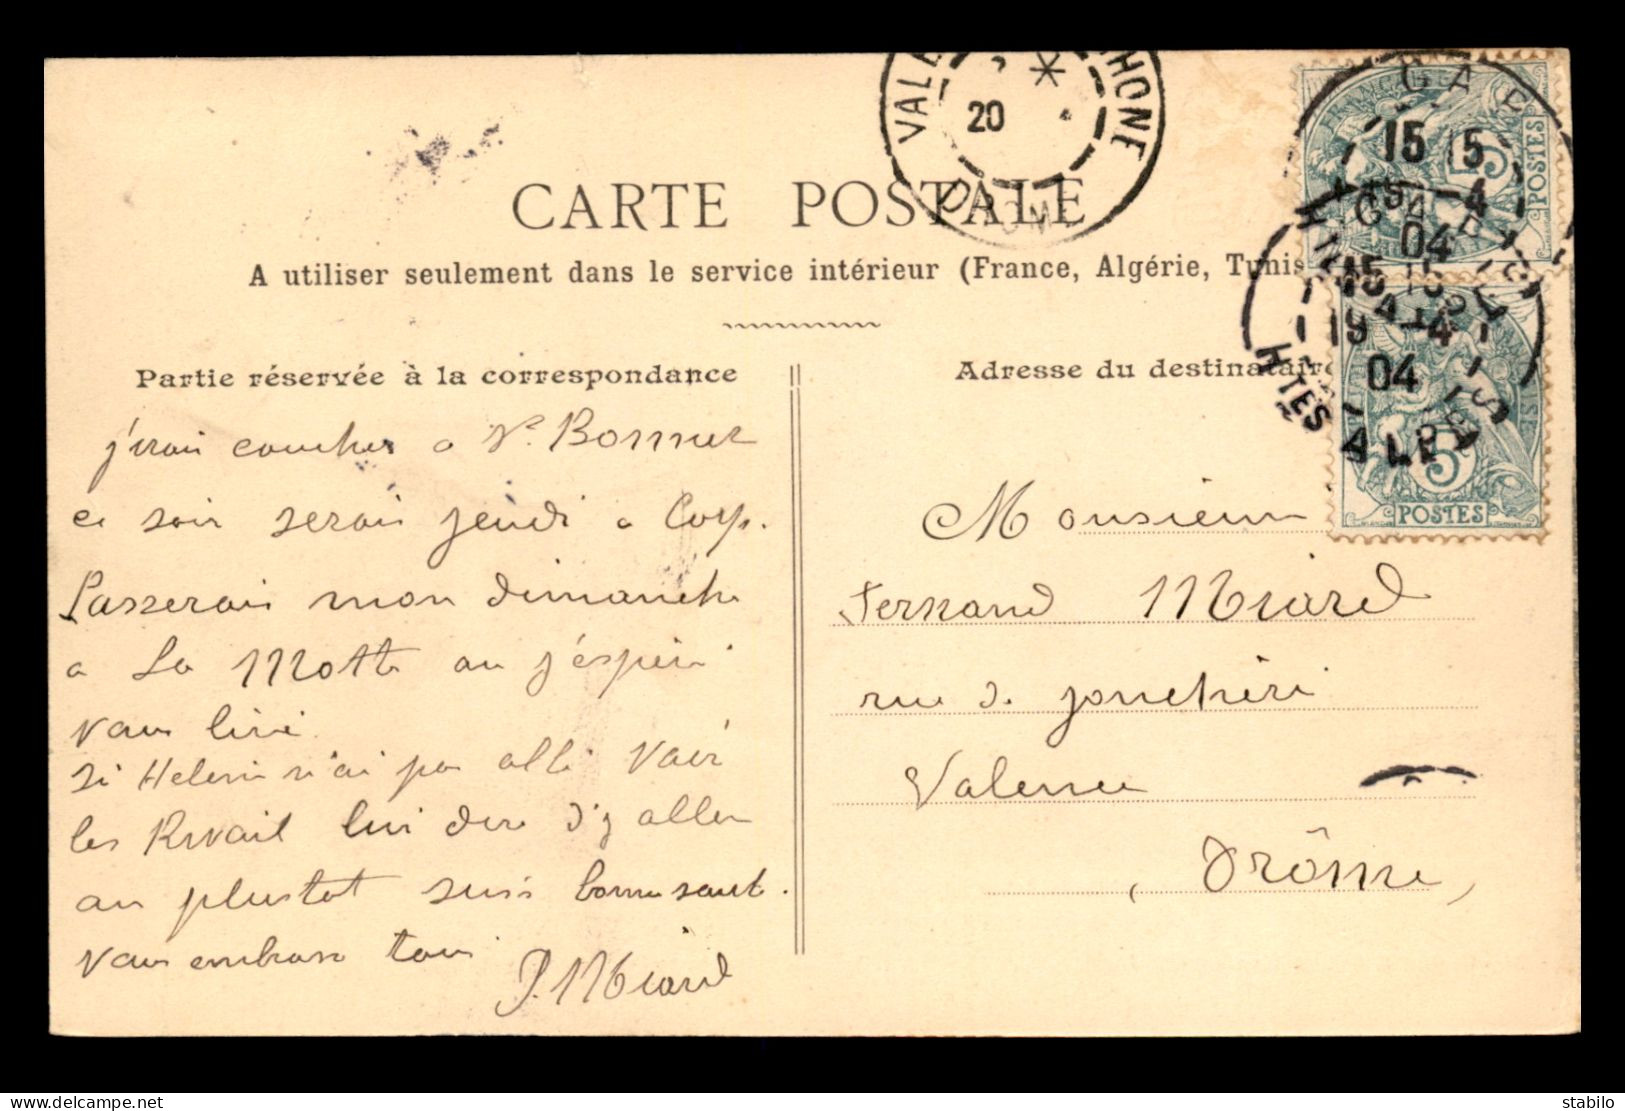 VALE HONE
20
DROM
CARTE POSTALE
A utiliser seulement dans le service intérieur (France, Algérie, Tunis
Partie réservée à la correspondance
j'irai coucher a St Bonnet
ce soir serai jeudi a Corp.
Passerais mon dimanche
a La Motte ou j'espère
vous lire
si Helene n'ai pas allé voir
les lui dire d'y aller
au plustot suis bonne santé.
vous embrasse tous
P. Miard
GAP
15 15
19 -4
04
HTES ALPES
FRANÇAISE
5
POSTES
GAP
15 15
19 -4
04
HTES ALPES
5
POSTES
Adresse du destinataire
Monsieur
Fernand Miard
rue de jonchère
Valence
(Drôme)
stabilo
www.delcampe.net